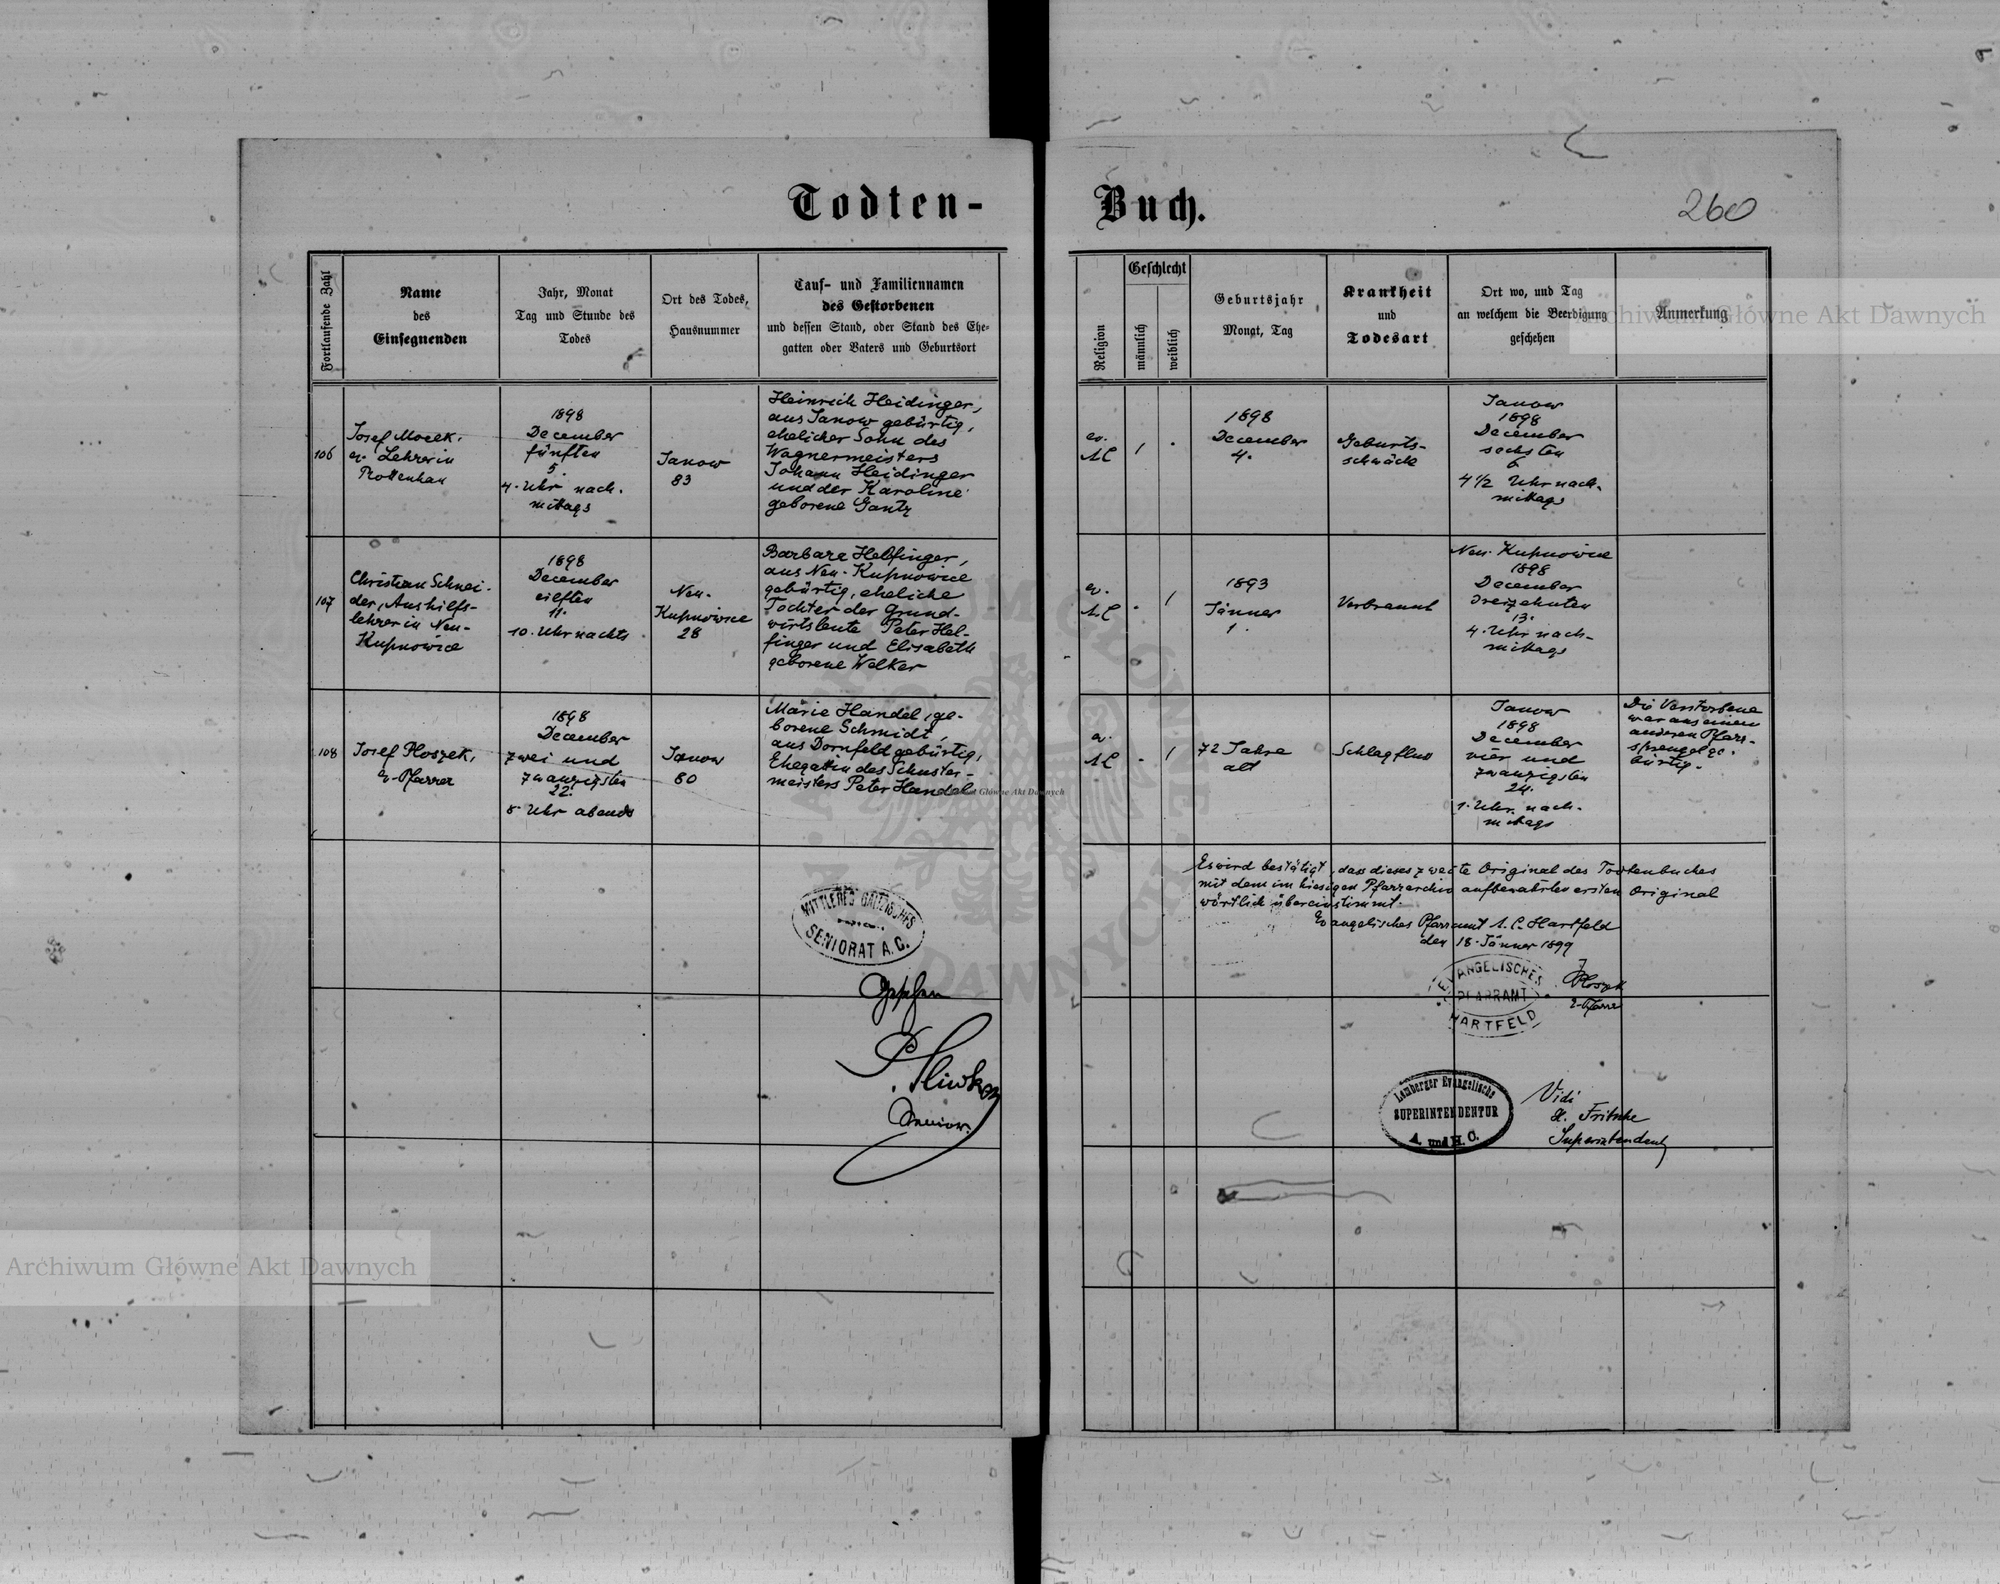 Todten-
Buch.
260
Fortlaufende Zahl
Name
des
Einsegnenden
Jahr, Monat
Tag und Stunde des
Todes
Ort des Todes,
Hausnummer
Tauf- und Familiennamen
des Gestorbenen
und dessen Stand, oder Stand des Ehe-
gatten oder Vaters und Geburtsort
Religion
Geschlecht
männlich
weiblich
Geburtsjahr
Monat, Tag
Krankheit
und
Todesart
Ort wo, und Tag
an welchem die Beerdigung
geschehen
Anmerkung
106
Josef Mocek,
ev. Lehrer in
Rottenhan
1898
December
fünften
5.
4. Uhr nach-
mittags
Janow
83
Heinrich Heidinger,
aus Janow gebürtig,
ehelicher Sohn des
Wagnermeisters
Johann Heidinger
und der Karoline
geborene Gantz
ev.
A.C.
1
.
1898
December
4.
Geburts-
schwäche
Janow
1898
December
sechsten
6
4 1/2 Uhr nach-
mittags
107
Christian Schnei-
der, Aushilfs-
lehrer in Neu-
Kupnowice
1898
December
eilften
11.
10. Uhr nachts
Neu-
Kupnowice
28
Barbara Helfinger,
aus Neu-Kupnowice
gebürtig, eheliche
Tochter der Grund-
wirtsleute Peter Hel-
finger und Elisabeth
geborene Welker
ev.
A.C.
.
1
1893
Jänner
1.
Verbrannt
Neu-Kupnowice
1898
December
dreizehnten
13.
4. Uhr nach-
mittags
108
Josef Ploszek,
ev. Pfarrer
1898
December
zwei und
zwanzigsten
22.
8 Uhr abends
Janow
80
Marie Handel, ge-
borene Schmidt,
aus Dornfeld gebürtig,
Ehegattin des Schuster-
meisters Peter Handel
ev.
A.C.
.
1
72 Jahre
alt
Schlagfluss
Janow
1898
December
vier und
zwanzigsten
24.
1. Uhr nach-
mittags
Die Verstorbene
war aus einem
anderen Pfarr-
sprengel ge-
bürtig.
Es wird bestätigt, dass dieses zweite Original des Todtenbuches
mit dem im hiesigen Pfarrarchiv aufbewahrten ersten Original
wörtlich übereinstimmt.
Evangelisches Pfarramt A. C. Hartfeld
den 18. Jänner 1899
EVANGELISCHES
PFARRAMT
HARTFELD
J Ploszek
ev. Pfarrer
MITTLERES GALIZISCHES
SENIORAT A.C.
Gesehen
Senior.
Lemberger Evangelische
SUPERINTENDENTUR
A. und H. C.
Vidi
Fritsche
Superintendent
Archiwum Główne Akt Dawnych
Archiwum Główne Akt Dawnych
Archiwum Główne Akt Dawnych